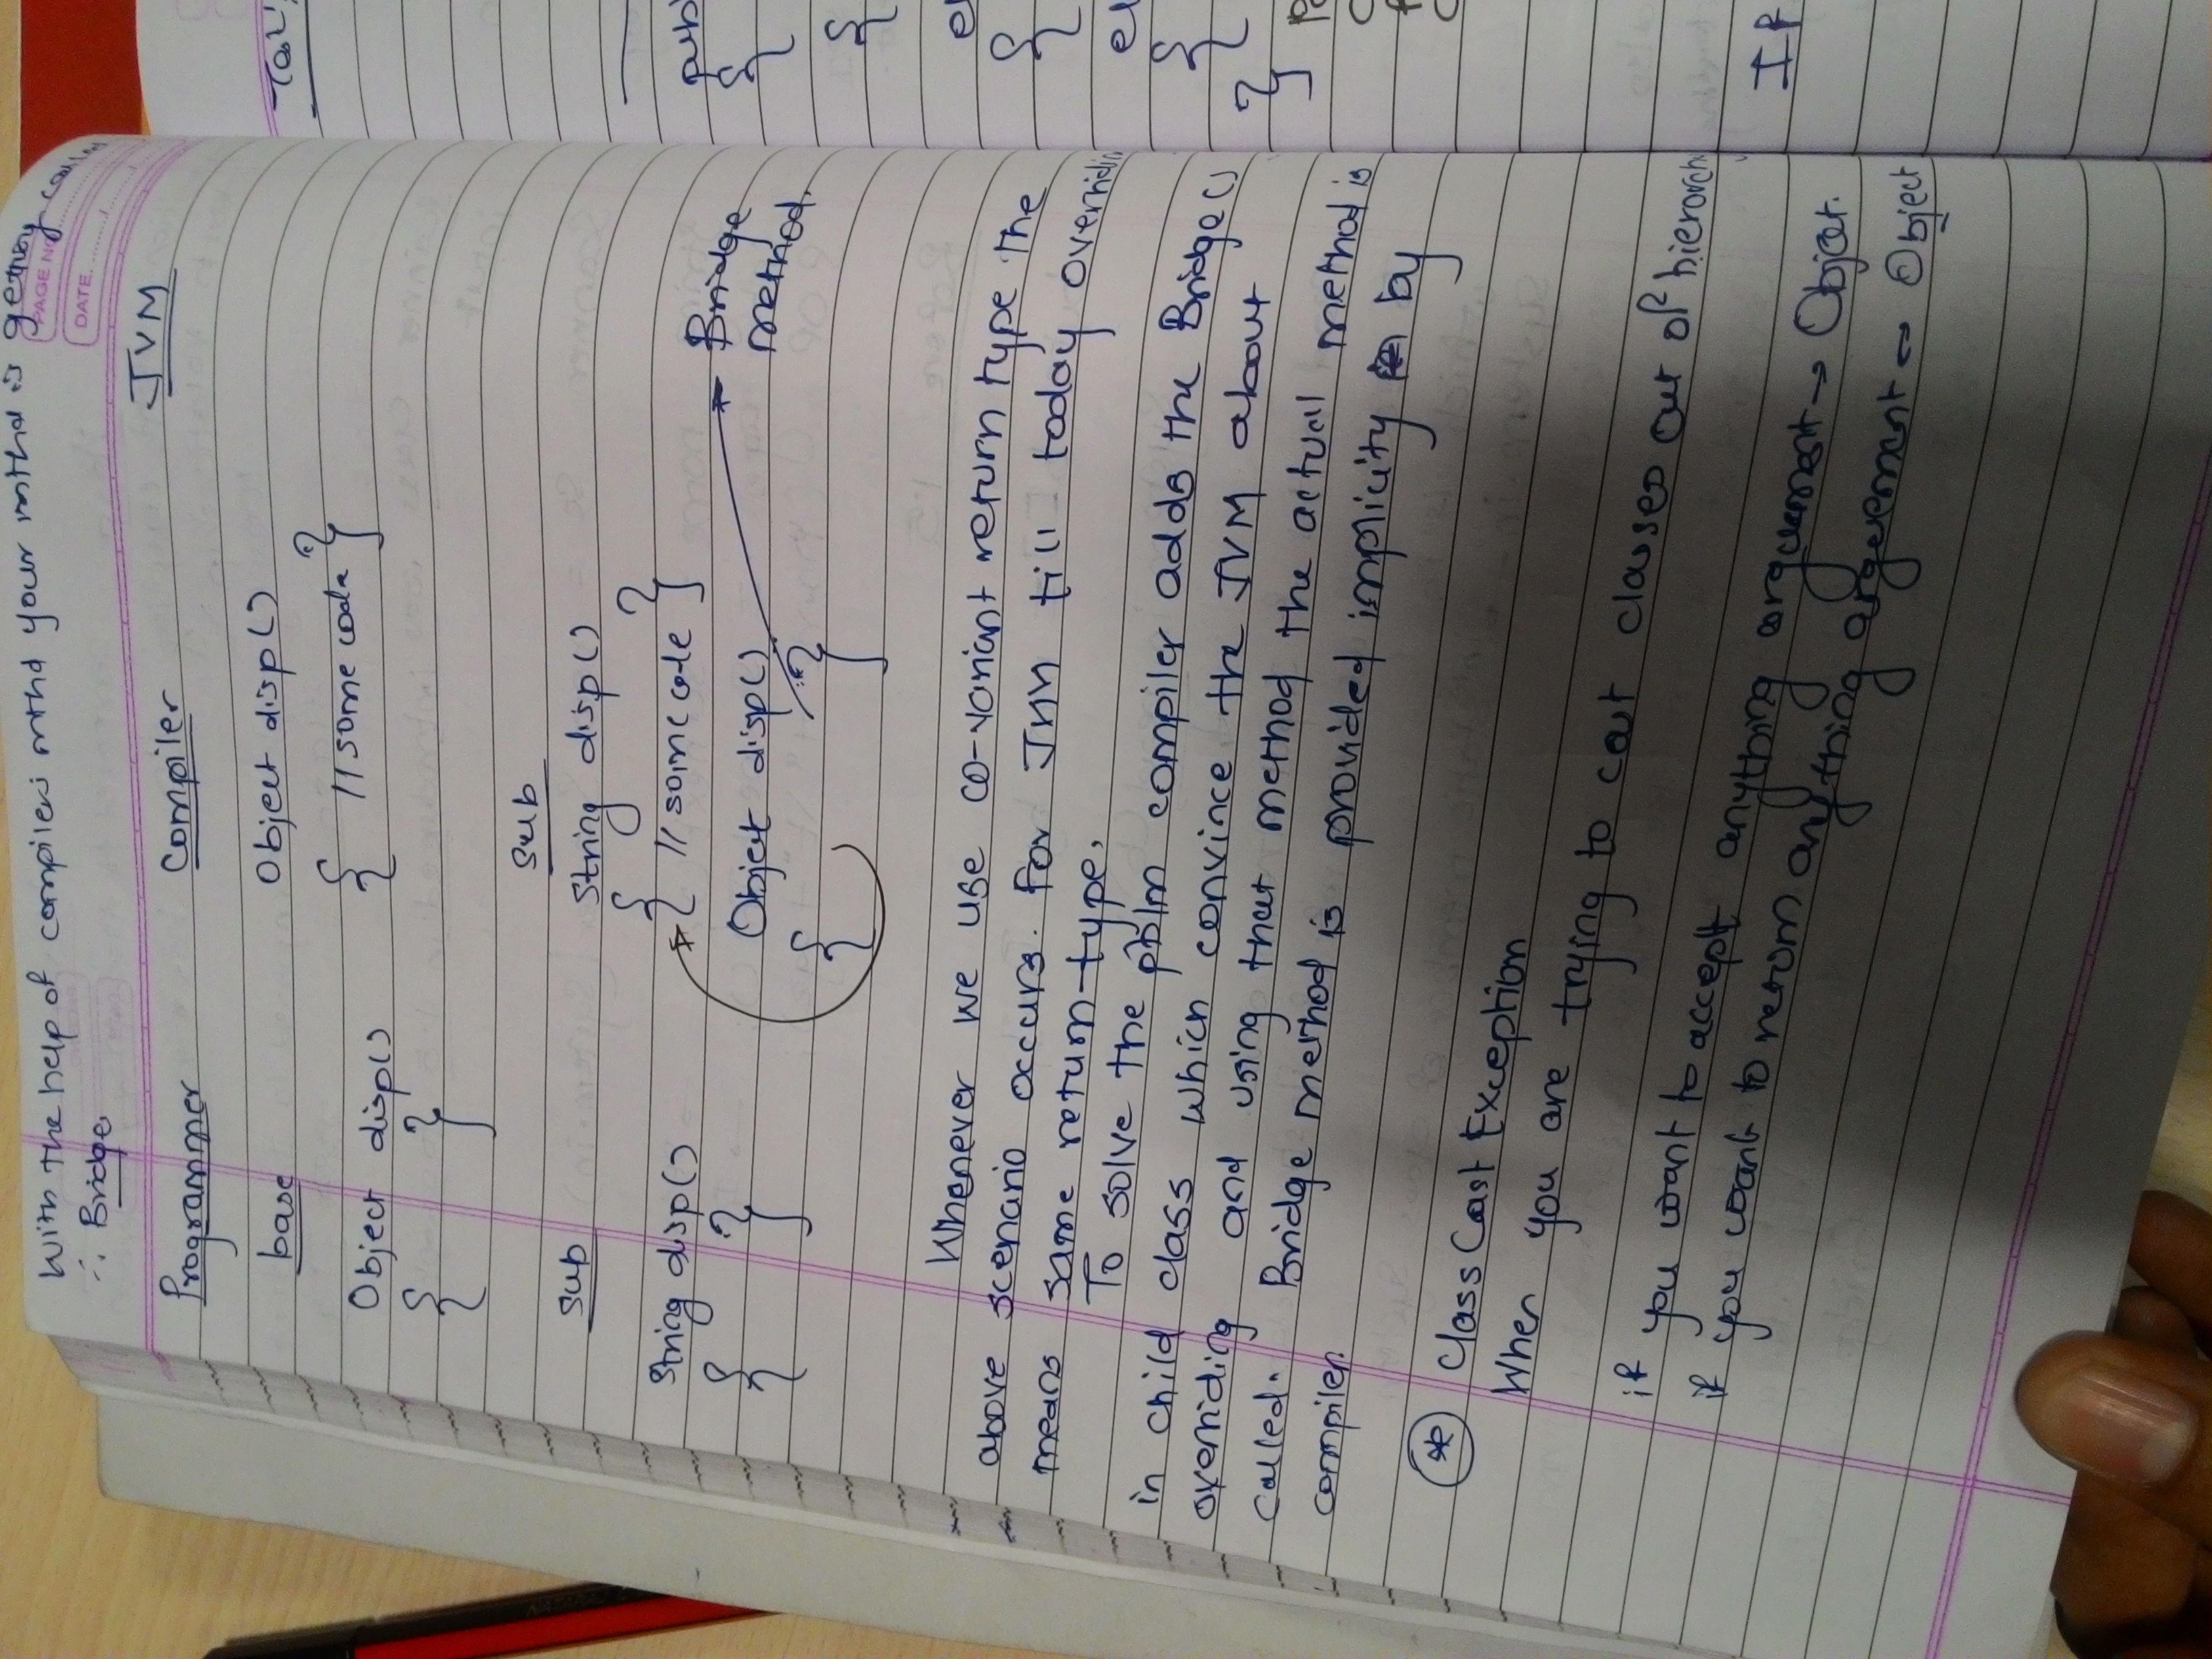 With the help of compilers mthd your mthd is getting called
∴ Bridge
PAGE NO
DATE.
Programmer Compiler JVM
base Object disp()
{ //some code }
Object disp()
{ }
sub
sub String disp()
{ //some code }
String disp()
{ }
Object disp()
{ }
Bridge
method.
Whenever we use co-variant return type the
above scenario occurs. For JVM till today overridin
means same return-type.
To solve the pblm compiler adds the Bridge()
in child class which convince the JVM about
overriding and using that method the actual method is
called. Bridge method is provided implicity by
compiler.
* Class Cast Exception
When you are trying to cast classes out of hierarchy
if you want to accept anything arguement → Object.
if you want to return anything arguement → Object
pub
{
{
el
{
el
{
}
If